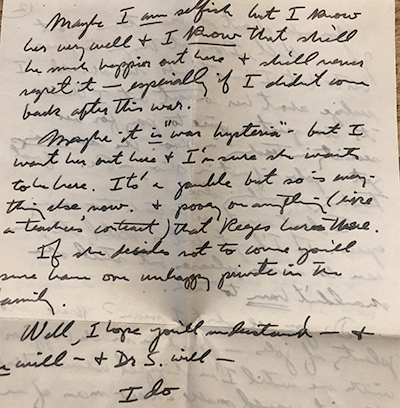 Maybe I am selfish but I know
her very well & I know that she'll
be much happier out here & she'll never
regret it — especially if I didn't come
back after this war.
Maybe it is "war hysteria" - but I
want her out here & I'm sure she wants
to be here. It's a gamble but so is every-
thing else now. & on anything (even
a teacher's contract) that
If she decides not to come you'll
sure have one unhappy private in the
family.
Well, I hope you'll understand — &
will — & Dr S. will —
I do